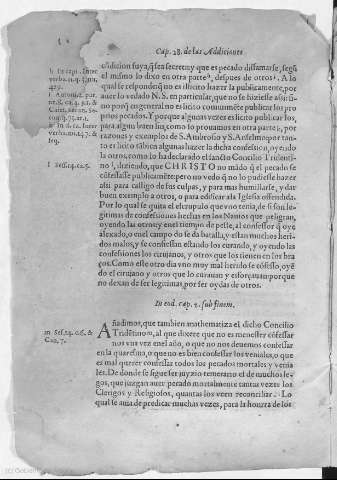 Cap. 28. de las Addiciones
h In capi. Inter
verba. 11. q. 3. nu.
429.
i Antonia. par.
k In d. ca. Inter
verba. nu. 427. &
seq.
l Sess. 14. ca. 5.
cōdicion suya, q̄ sea secreta, y que es pecado disfamarse, segū
el mismo lo dixo en otra parteʰ, despues de otrosⁱ. A lo
qual se respondē q̄ no es illicito hazer la publicamente, por
auer lo vedado N. S. en particular, que no se hiziesse assi: si-
no porq̄ en general no es licito comunmēte publicar los pro
prios pecados. Y porque algunas vezes es licito publicar los,
para algun buen fin, como lo prouamos en otra parteᵏ, por
razones y exemplos de S. Ambrosio y S. Anselmo: por tan-
to es licito a las vezes algunas hazer la dicha confession, oyendo
la otros, como lo ha declarado el sancto Concilio Tridenti-
noˡ, diziendo, que CHRISTO no mādo q̄ el pecado se
cōfessasse publicamēte: pero no vedó q̄ no lo pudiesse hazer
assi para castigo de sus culpas, y para mas humillarse, y dar
buen exemplo a otros, o para edificar a la Iglesia offendida.
Por lo qual se quita el escrupulo que vno tenia, de si son le-
gitimas las confessiones hechas en las Naues que peligran,
oyendo las otros: y en el tiempo de peste, al confessor q̄ oye
alexado, o en el campo do se da batalla, y estan muchos heri-
dos malos, y se confiessan estando los curando, y oyendo las
confessiones los cirujanos, y otros que los tienen en los bra-
ços. Como este otro dia vno muy mal herido se cōfesso, oyē-
do el cirujano y otros que lo curauan y esforçauan: porque
no dexan de ser legitimas, por ser oydas de otros.
In eod. cap. 2. sub finem.
m Ses. 14. c. 6. &
Can. 7.
Añadimos, que tambien anathematiza el dicho Concilio
Tridētinoᵐ, al que dixere que no es menester cōfessar
nos vna vez en el año, o que no deuemos confessar
en la quaresma, o que no es bien confessar los veniales, o que
es mal querer confessar todos los pecados mortales y venia
les. De donde se sigue ser juyzio temerario el de muchos le-
gos, que juzgan auer pecado mortalmente tantas vezes los
Clerigos y Religiosos, quantas los veen reconciliar. Lo
qual se auia de predicar muchas vezes, para la honrra de los